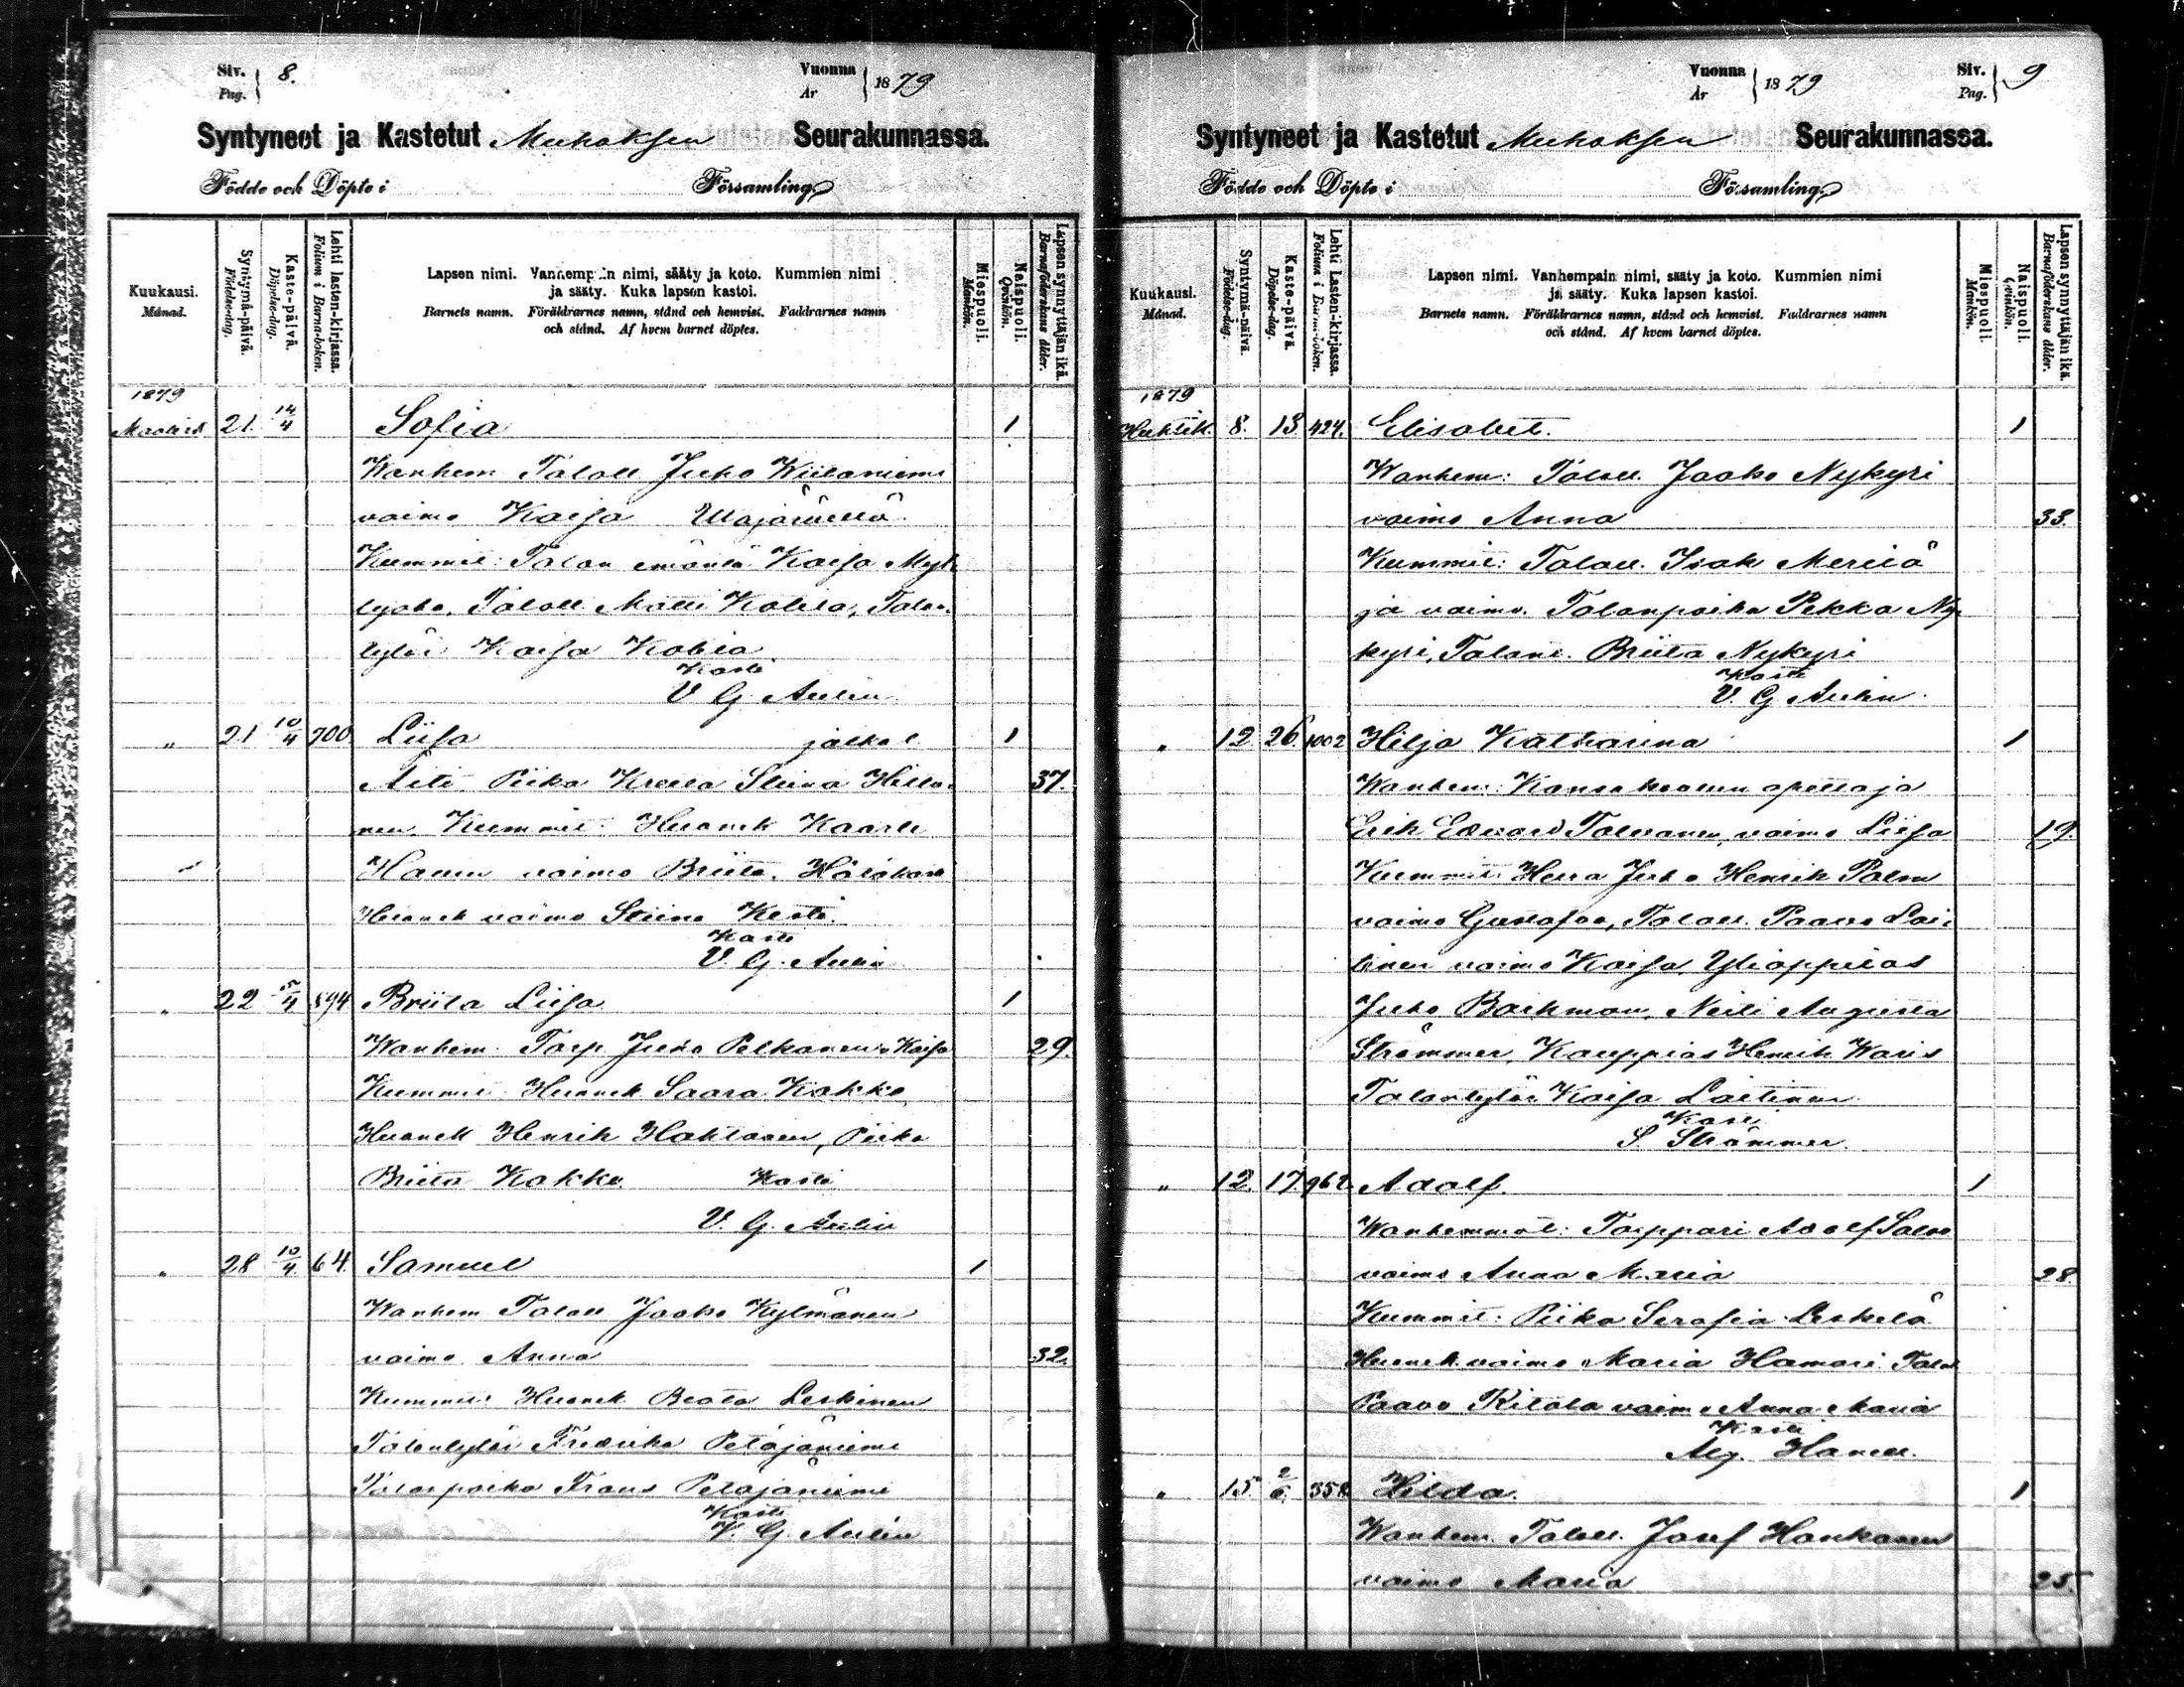 Siv. Pag. 8.
Vuonna År 1879
Syntyneet ja Kastetut Muhoksen Seurakunnassa.
Födde och Döpte i Församling
Kuukausi. Månad.
Syntymä-päivä. Födelse-dag.
Kaste-päivä. Döpelse-dag.
Lehti lasten-kirjassa. Folium i Barna-boken.
Lapsen nimi. Vanhempain nimi, sääty ja koto. Kummien nimi
ja sääty. Kuka lapsen kastoi.
Barnets namn. Föräldrarnes namn, stånd och hemvist. Faddrarnes namn
och stånd. Af hvem barnet döptes.
Miespuoli. Mankön.
Naispuoli. Qvinkön.
Lapsen synnyttäjän ikä. Barnaföderskans ålder.
1879
Maalisk 21. 14/4 Sofia 1
Wanhem Taloll Juho Wiilaniemi
vaimo Kaisa Utajärvellä
Kummit: Talon emäntä Kaisa Myl-
lyaho, Taloll Matti Kokla, Talon-
tytär Kaisa
Kasti
V G Aulin
" 21 10/4 700 Liisa jalka l 1
Äiti Piika Kreeta Stiina 37.
nen Kummit: Huonek Kaarle
vaimo Briita
Huonek vaimo Stiina
Kasti
V. G. Aulin
" 22 15/4 894 Briita Liisa 1
Wanhem Torp. Juho Pelkonen v Kaisa 29.
Kummit Huonek Saara Kokko
Huonek Henrik Hahtonen, Piika
Briita Kokko Kasti
V. G. Aulin
" 28 10/4. 64. Samuel 1
Wanhem Taloll Jaako Kylmänen
vaimo Anna 32.
Kummit: Huonek Beata Leskinen
Talontytär Fredrika Petäjäniemi
Talonpoika Frans Petäjäniemi
Kasti
V. G. Aulin
Vuonna År 1879
Siv. Pag. 9
Syntyneet ja Kastetut Muhoksen Seurakunnassa.
Födde och Döpte i Församling
Kuukausi. Månad.
Syntymä-päivä. Födelse-dag.
Kaste-päivä. Döpelse-dag.
Lehti Lasten-kirjassa. Folium i Barna-boken.
Lapsen nimi. Vanhempain nimi, sääty ja koto. Kummien nimi
ja sääty. Kuka lapsen kastoi.
Barnets namn. Föräldrarnes namn, stånd och hemvist. Faddrarnes namn
och stånd. Af hvem barnet döptes.
Miespuoli. Mankön.
Naispuoli. Qvinkön.
Lapsen synnyttäjän ikä. Barnaföderskans ålder.
1879
Huhtik. 8. 13 424. Elisabet. 1
Wanhem: Taloll. Jaako Nykyri
vaimo Anna 33.
Kummit: Taloll. Isak Merilä
ja vaimo. Talonpoika Pekka Ny-
kyri, Talont. Briita Nykyri
Kasti
V. G Aulin
" 12 26. 1002 Hilja Katharina 1
Wanhem: Kansakoulun opettaja
Erik Edvard Tolvanen, vaimo Liisa 19.
Kummit: Herra Juho Henrik Palm
vaimo Gustafva, Taloll. Paavo Lai-
tinen vaimo Kaisa, Ylioppilas
Juho Backman, Neiti Augusta
Strömmer, Kauppias Henrik Waris
Talontytär Kaisa Laitinen
Kasti
S. Strömmer.
" 12. 17 962. Adolf. 1
Wanhemmat: Torppari Adolf Salo
vaimo Anna Maria 28
Kummit: Piika Serafia Leskelä
Huonek. vaimo Maria Hamari Talol
Paavo Ritola vaimo Anna Maria
Kasti
Aug. Haneli.
" 15. 2/6. 358 Hilda. 1
Wanhem. Taloll. Josef Honkanen
vaimo Maria 25.